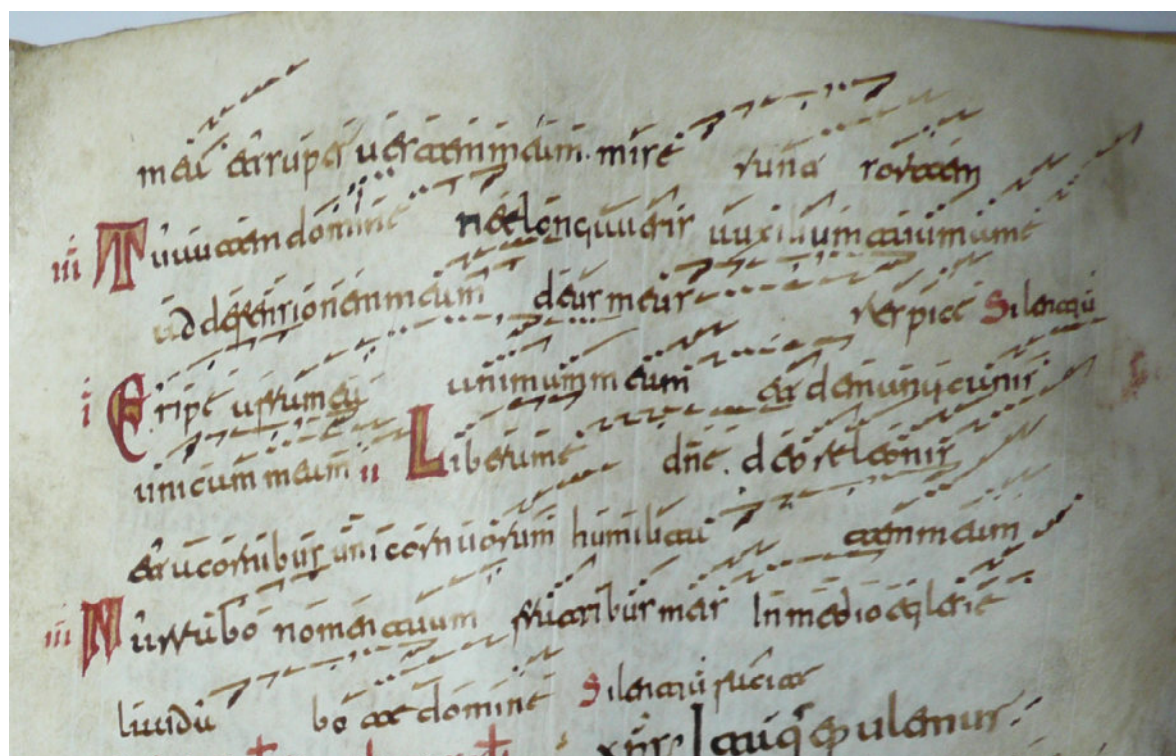 mea et super vestem meam. miserunt sortem
iii Tu autem domine ne elongaveris auxilium tuum a me
ad defensionem meam deus meus respice Silentiu
i Eripe a framea animam meam et de manu canis
unicam meam ii Libera me dne. de ore leonis
et a cornibus unicornuorum humilitatem meam
iii Narrabo nomen tuum fratribus meis In medio eclesie
laudabo te domine Silentiu facite
Itaq epulemur